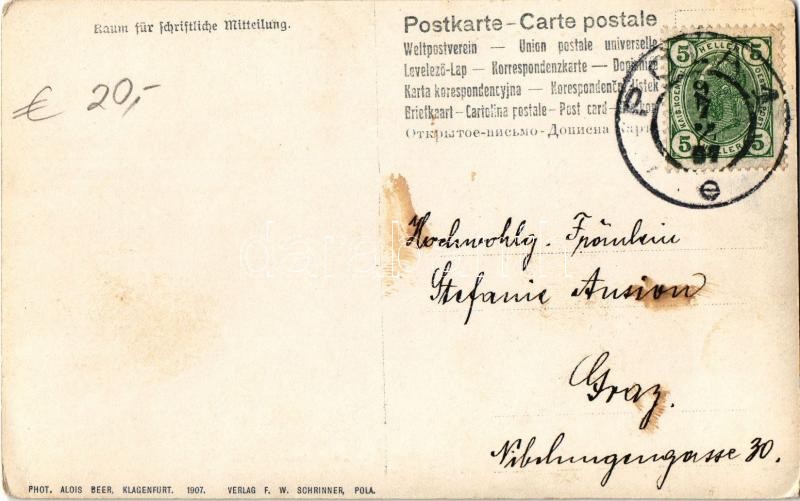 Raum für schriftliche Mitteilung.
€ 20,-
Postkarte – Carte postale
Weltpostverein — Union postale universelle
Levelező-Lap — Korrespondenzkarte —
Karta korespondencyjna — Korespondenční lístek
Briefkaart – Cartolina postale – Post card –
Открытое-письмо – Дописна карта
5 HELLER 5
5 HELLER 5
POLA
e
Hochwohlg. Fräulein
Stefanie Ansion
Graz.
Nibelungengasse 30.
PHOT. ALOIS BEER, KLAGENFURT. 1907. VERLAG F. W. SCHRINNER, POLA.